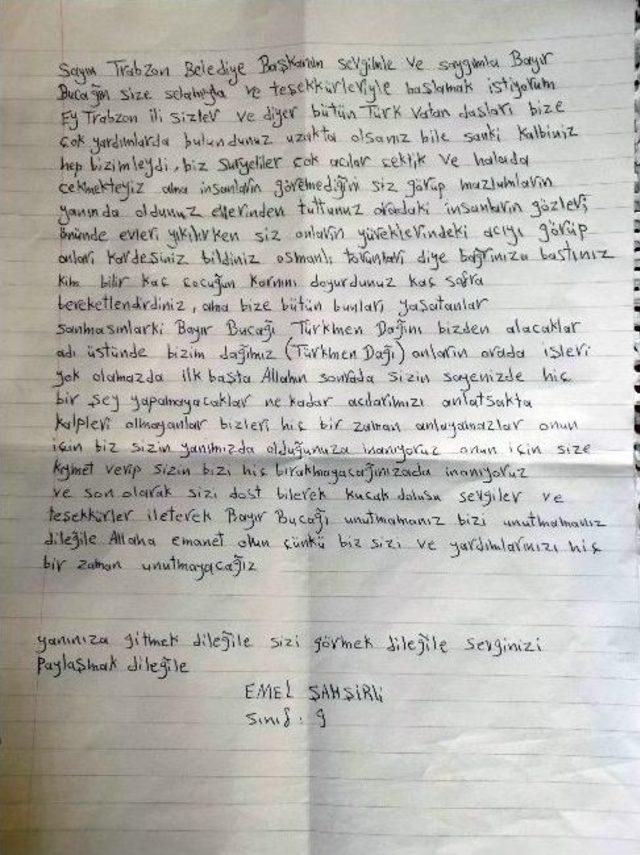 Sayın Trabzon Belediye Başkanım sevgimle ve saygımla Bayır
Bucağın size selamıyla ve teşekkürleriyle başlamak istiyorum
Ey Trabzon ili sizler ve diğer bütün Türk Vatan daşları bize
çok yardımlarda bulundunuz uzakta olsanız bile sanki kalbiniz
hep bizimleydi, biz suriyeliler çok acılar çektik ve halada
çekmekteyiz ama insanların göremediğini siz görüp mazlumların
yanında oldunuz ellerinden tuttunuz oradaki insanların gözleri
önünde evleri yıkılırken siz onların yüreklerindeki acıyı görüp
onları kardeşiniz bildiniz osmanlı torunları diye bağrınıza bastınız
kim bilir kaç çocuğun karnını doyurdunuz kaç sofra
bereketlendirdiniz, ama bize bütün bunları yaşatanlar
sanmasınlarki Bayır Bucağı Türkmen Dağını bizden alacaklar
adı üstünde bizim dağımız (Türkmen Dağı) onların orada işleri
yok olamazda ilk başta Allahın sonrada sizin sayenizde hiç
bir şey yapamayacaklar ne kadar acılarımızı anlatsakta
kalpleri olmayanlar bizleri hiç bir zaman anlayamazlar onun
için biz sizin yanımızda olduğunuza inanıyoruz onun için size
kıymet verip sizin bizi hiç bırakmayacağınızada inanıyoruz
ve son olarak sizi dost bilerek kucak dolusu sevgiler ve
teşekkürler ileterek Bayır Bucağı unutmamanız bizi unutmamanız
dileğile Allaha emanet olun çünkü biz sizi ve yardımlarınızı hiç
bir zaman unutmayacağız
yanınıza gitmek dileğile sizi görmek dileğile sevginizi
paylaşmak dileğile
EMEL ŞAHSİRLİ
Sınıf : 9